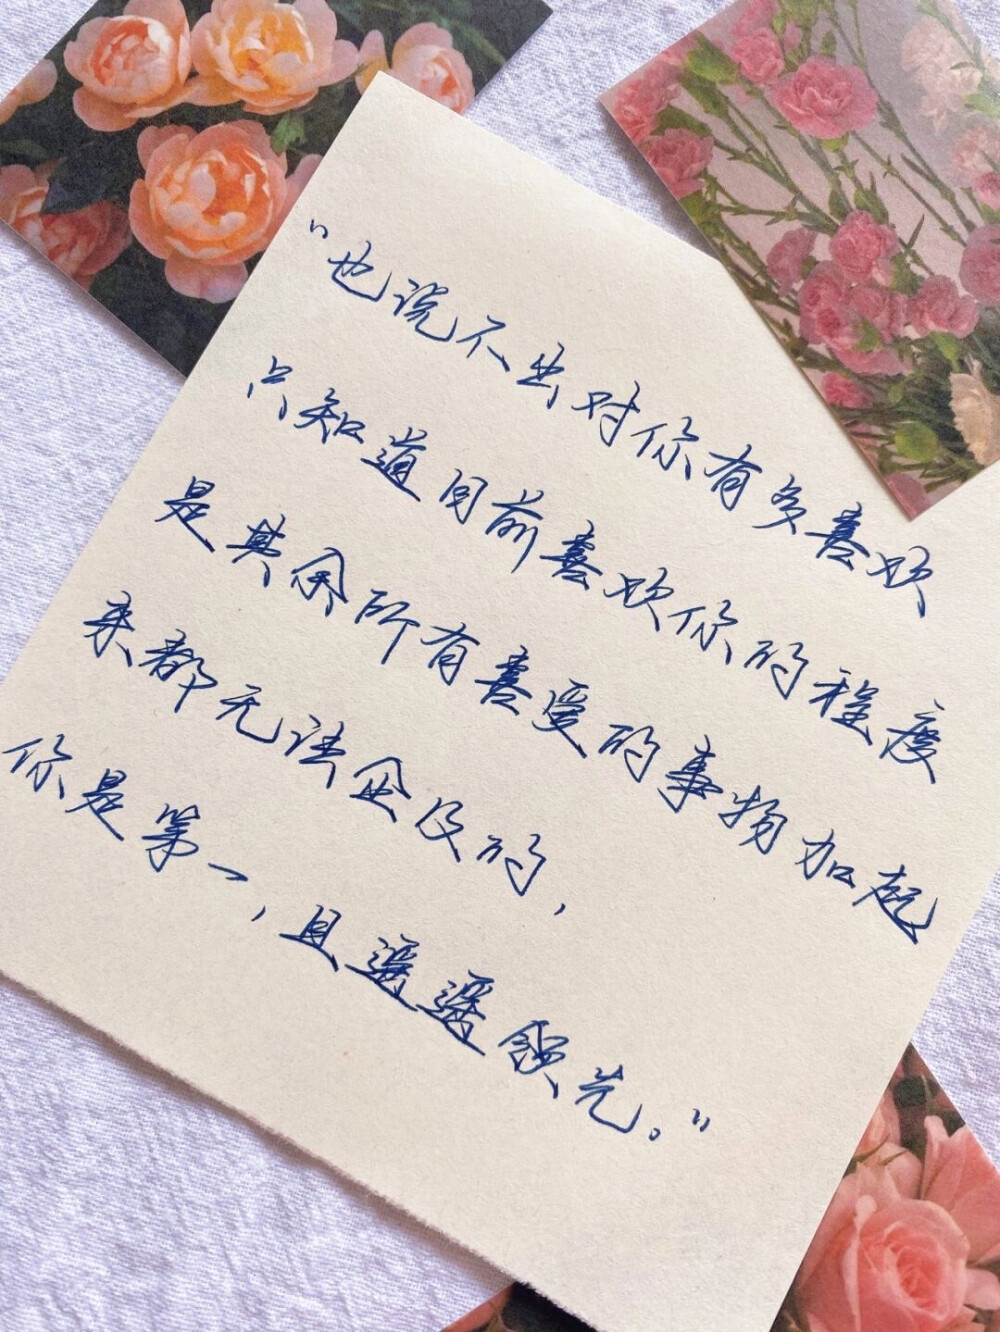 “也说不出对你有多喜欢
只知道目前喜欢你的程度
是其余所有喜爱的事物加起
来都无法企及的，
你是第一，且遥遥领先。”